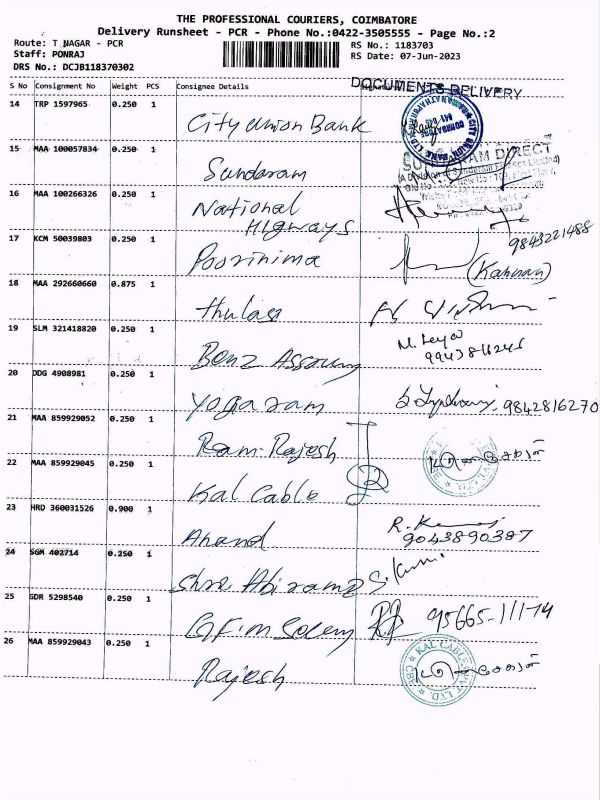 THE PROFESSIONAL COURIERS, COIMBATORE
Delivery Runsheet - PCR - Phone No.:0422-3505555 - Page No.:2
Route: T NAGAR - PCR
RS No.: 1183703
Staff: PONRAJ
RS Date: 07-Jun-2023
DRS No.: DCJB118370302
S No Consignment No Weight PCS Consignee Details
DOCUMENTS DELIVERY
14 TRP 1597965 0.250 1
City Union Bank
15 MAA 100057834 0.250 1
Sundaram
SUNDARAM DIRECT
16 MAA 100266326 0.250 1
National
Highways
9843221488
17 KCM 50039803 0.250 1
Poorinima
(Kannan)
18 MAA 292660660 0.875 1
Thulasi
19 SLM 321418820 0.250 1
Benz
20 DDG 4908981 0.250 1
Yogaram
9842816270
21 MAA 859929052 0.250 1
Ram Rajesh
22 MAA 859929045 0.250 1
Kal Cable
23 HRD 360031526 0.900 1
Anand
9043890387
24 SGM 402714 0.250 1
Shre Abirami
25 GDR 5298540 0.250 1
95665-11174
26 MAA 859929043 0.250 1
Rajesh
KAL CABLE PVT LTD. CBE